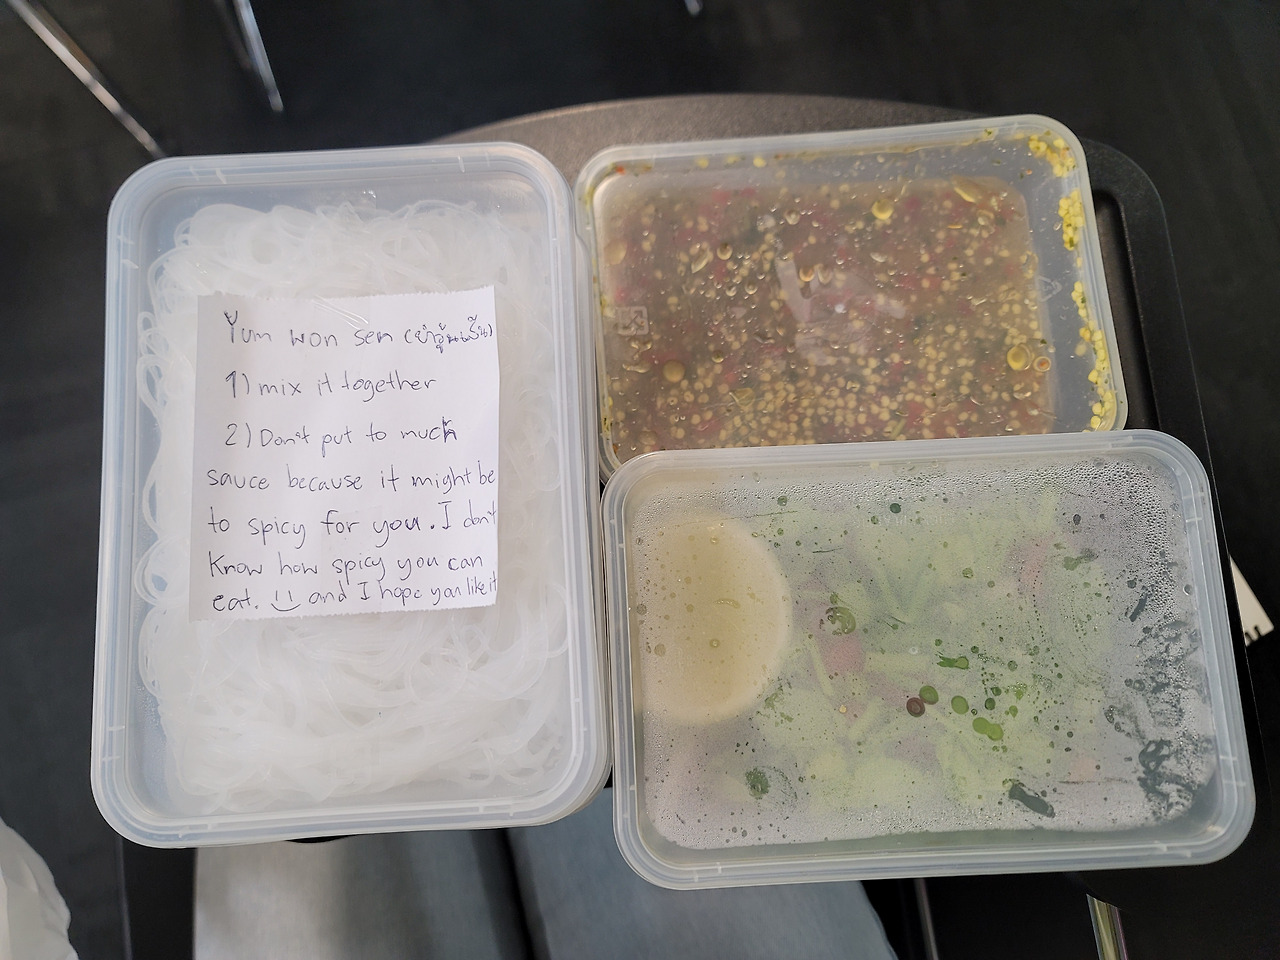 Yum won sen (ยำวุ้นเส้น)
1) mix it together
2) Don't put to much
sauce because it might be
to spicy for you. I don't
Know how spicy you can
eat. :) and I hope you like it